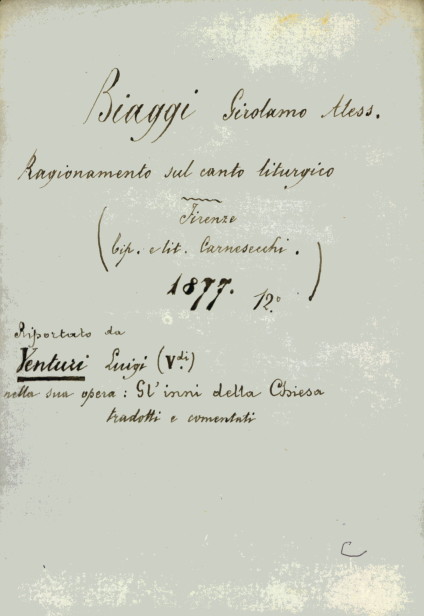 Biaggi Girolamo Aless.
Ragionamento sul canto liturgico
Firenze
(Tip. e lit. Carnesecchi.)
1877. 12º
Riportato da
Venturi Luigi (Vdi)
nella sua opera: Gl'inni della Chiesa
tradotti e comentati
C